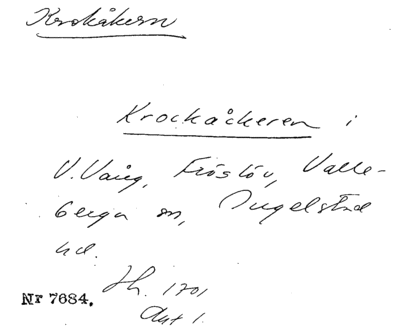 Krokåkern
Krockåckeren i
V. Vång, Fröslöv, Valle-
berga sn, Ingelstad
hd.
Jh. 1701
Nr 7684.
Akt 1.